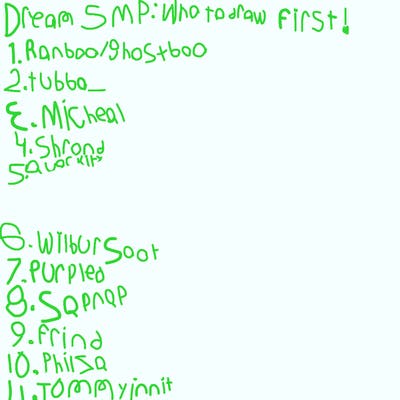 Dream SMP: Who to draw first!
1. Ranboo/ghostboo
2. tubbo_
3. Micheal
4. Shrond
5. Quackity
6. Wilbur Soot
7. Purpled
8. Sapnap
9. Frind
10. Philza
11. Tommyinnit